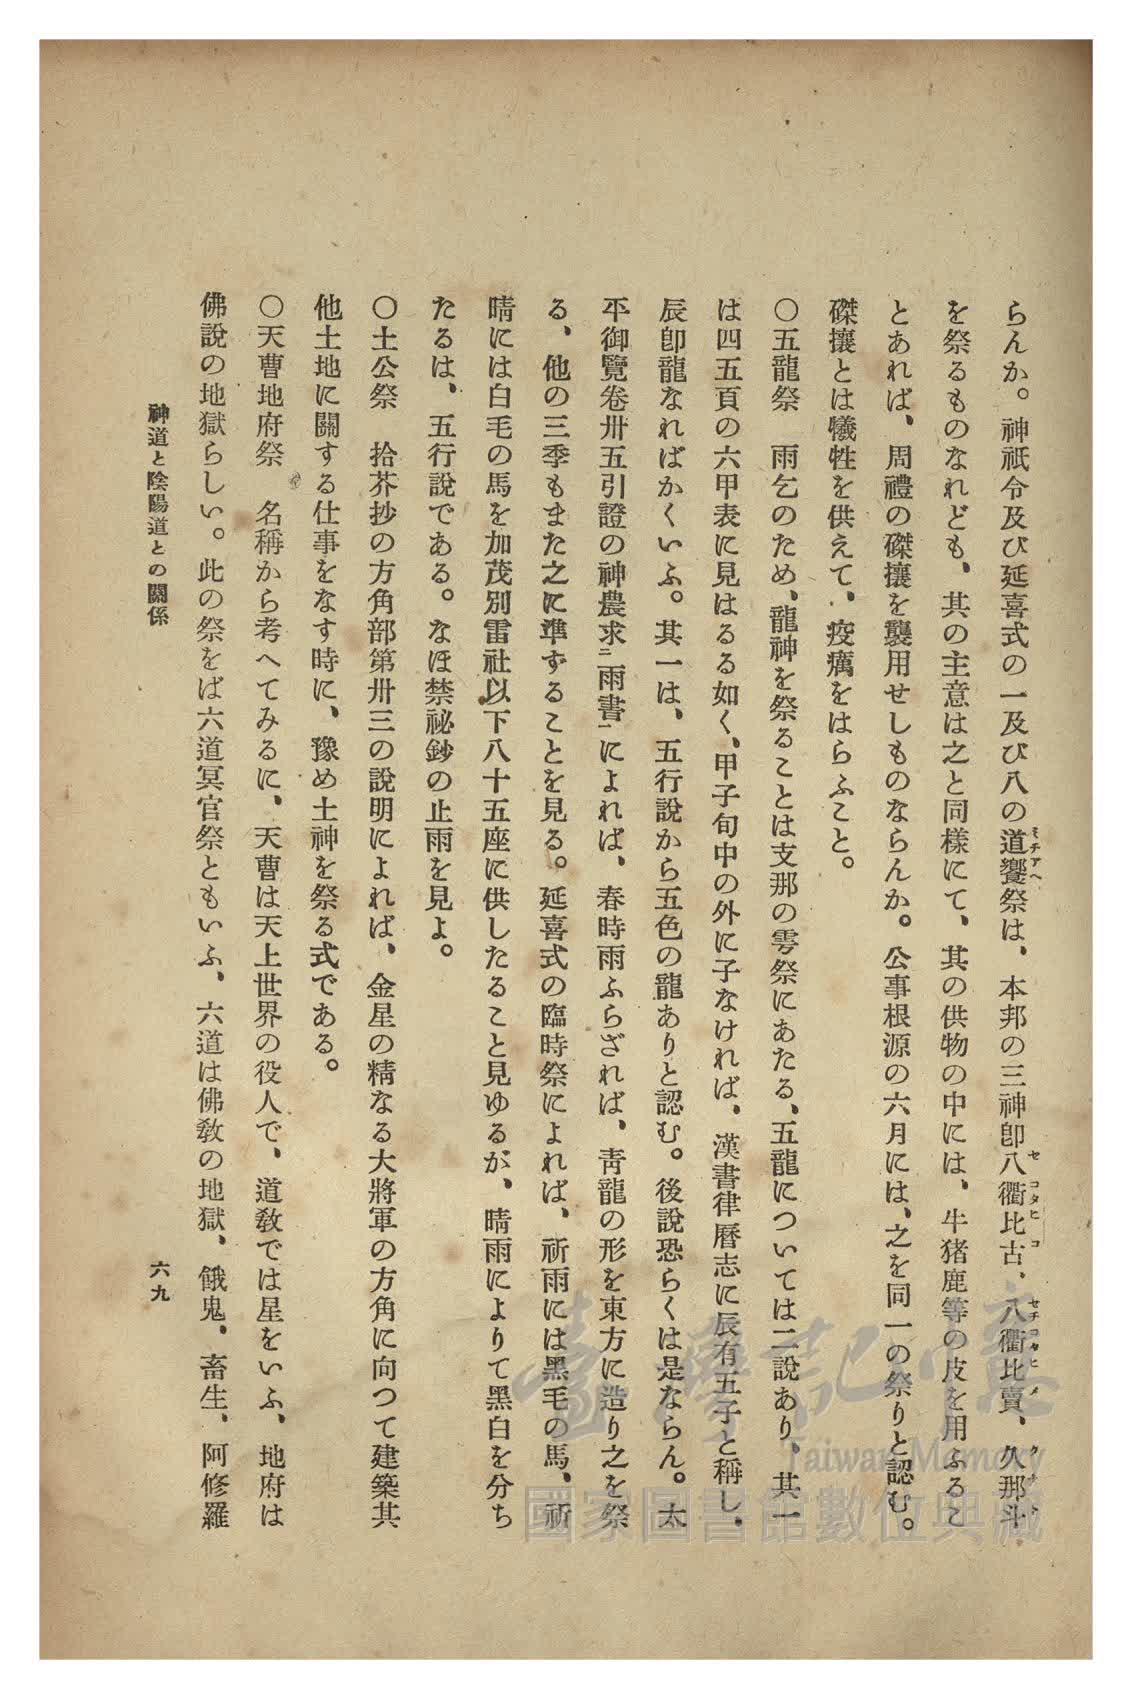 らんか。神祇令及び延喜式の一及び八の道饗祭は、本邦の三神卽八衢比古、八衢比賣、久那斗
を祭るものなれども、其の主意は之と同樣にて、其の供物の中には、牛猪鹿等の皮を用ふるこ
とあれば、周禮の磔攘を襲用せしものならんか。公事根源の六月には、之を同一の祭りと認む。
磔攘とは犧牲を供えて、疫癘をはらふこと。
〇五龍祭　雨乞のため、龍神を祭ることは支那の雩祭にあたる、五龍については二說あり、其一
は四五頁の六甲表に見はるる如く、甲子旬中の外に子なければ、漢書律曆志に辰有五子と稱し、
辰卽龍なればかくいふ。其一は、五行說から五色の龍ありと認む。後說恐らくは是ならん。太
平御覽卷卅五引證の神農求二雨書一によれば、春時雨ふらざれば、靑龍の形を東方に造り之を祭
る、他の三季もまた之に準ずることを見る。延喜式の臨時祭によれば、祈雨には黑毛の馬、祈
晴には白毛の馬を加茂別雷社以下八十五座に供したること見ゆるが、晴雨によりて黑白を分ち
たるは、五行說である。なほ禁祕鈔の止雨を見よ。
〇土公祭　拾芥抄の方角部第卅三の說明によれば、金星の精なる大將軍の方角に向つて建築其
他土地に關する仕事をなす時に、豫め土神を祭る式である。
〇天曹地府祭　名稱から考へてみるに、天曹は天上世界の役人で、道敎では星をいふ、地府は
佛說の地獄らしい。此の祭をば六道冥官祭ともいふ、六道は佛敎の地獄、餓鬼、畜生、阿修羅
神道と陰陽道との關係
六九
臺灣記憶
Taiwan Memory
國家圖書館數位典藏